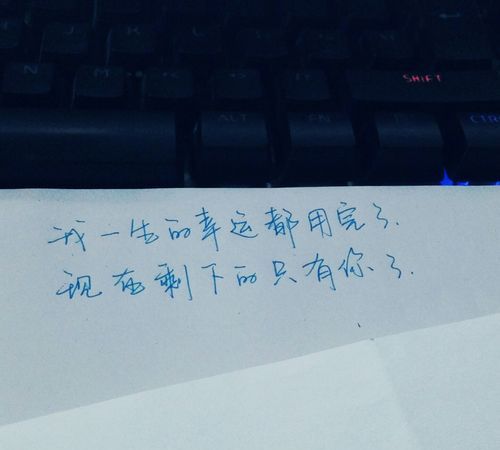 N M
SHIFT
ALT FN CTR
我一生的幸运都用完了.
现在剩下的只有你了.